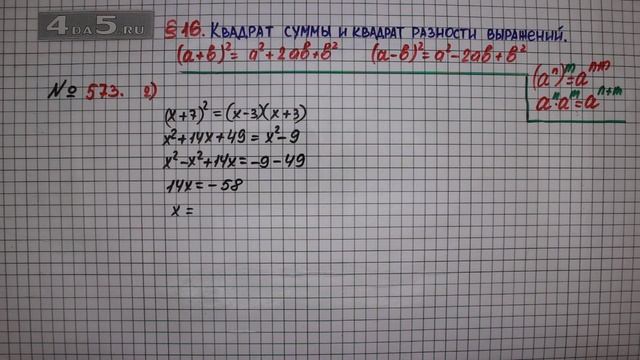 4DA5.RU
§ 16. Квадрат суммы и квадрат разности выражений.
(a+b)² = a²+2ab+b² (a-b)² = a²-2ab+b²
(aⁿ)ᵐ=aⁿᵐ
aⁿ·aᵐ=aⁿ⁺ᵐ
№ 573. 2)
(x+7)² = (x-3)(x+3)
x²+14x+49 = x²-9
x²-x²+14x = -9-49
14x = -58
x =